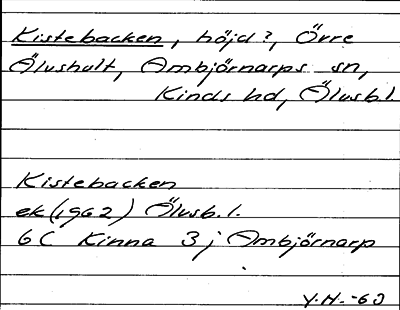 Kistebacken, höjd?, Övre
Älvshult, Ambjörnarps sn,
Kinds hd, Älvsb.l.
Kistebacken
ek (1962) Älvsb.l.
6C Kinna 3j Ambjörnarp
Y.H.-63